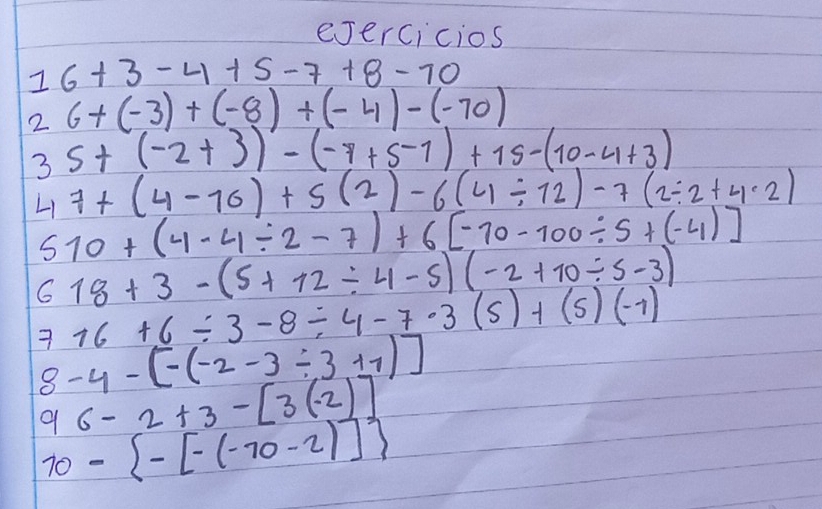 ejercicios
1 6 + 3 - 4 + 5 - 7 + 8 - 10
2 6 + (-3) + (-8) + (-4) - (-10)
3 5 + (-2 + 3) - (-7 + 5 - 1) + 15 - (10 - 4 + 3)
4 7 + (4 - 16) + 5 (2) - 6 (4 ÷ 12) - 7 (2 ÷ 2 + 4 · 2)
5 10 + (4 - 4 ÷ 2 - 7) + 6 [-10 - 100 ÷ 5 + (-4)]
6 18 + 3 - (5 + 12 ÷ 4 - 5) (-2 + 10 ÷ 5 - 3)
7 16 + 6 ÷ 3 - 8 ÷ 4 - 7 · 3 (5) + (5) (-1)
8 -4 - [-(-2 - 3 ÷ 3 + 1)]
9 6 - 2 + 3 - [3 (-2)]
10 - {-[-(-10 - 2)]}